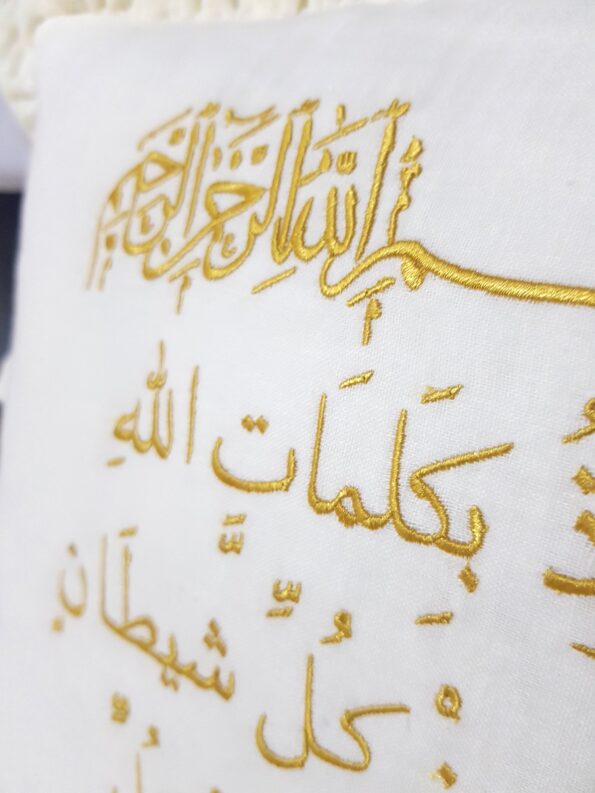 بسم الله الرحمن الرحيم
بِكَلِمَاتِ اللهِ
كُلِّ شيطَانٍ